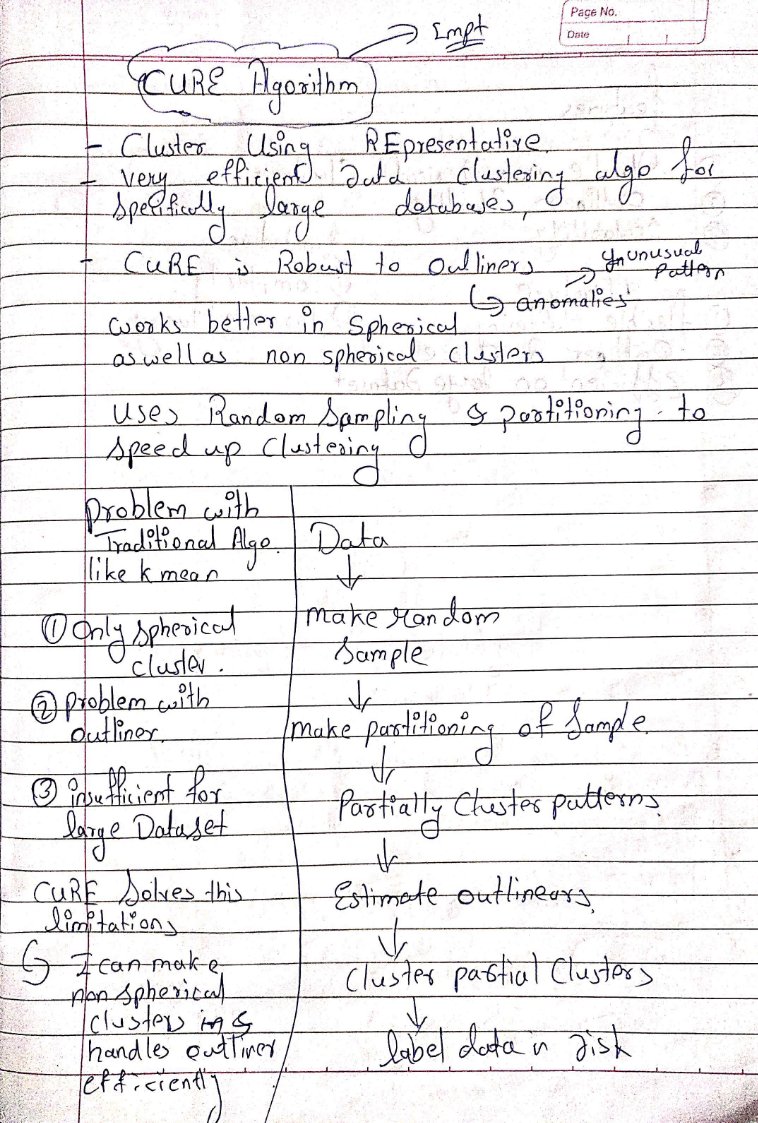 Page No.
Date
Impt
CURE Algorithm
- Cluster Using REpresentative.
- very efficient data clustering algo for
specifically large databases,
- CURE is Robust to outliners
→ anomalies → unusual
pattern
works better in spherical
aswell as non spherical clusters
uses Random Sampling & partitioning to
speed up clustering
Problem with
Traditional Algo.
like k mean
① Only spherical
cluster.
② problem with
outliner.
③ insufficient for
large Dataset
CURE Solves this
limitations
↳ I can make
non spherical
clusters &
handles outliner
efficiently
Data
↓
make random
sample
↓
make partitioning of sample.
↓
Partially Cluster patterns.
↓
Estimate outlineurs.
↓
Cluster partial Clusters
↓
label data n disk